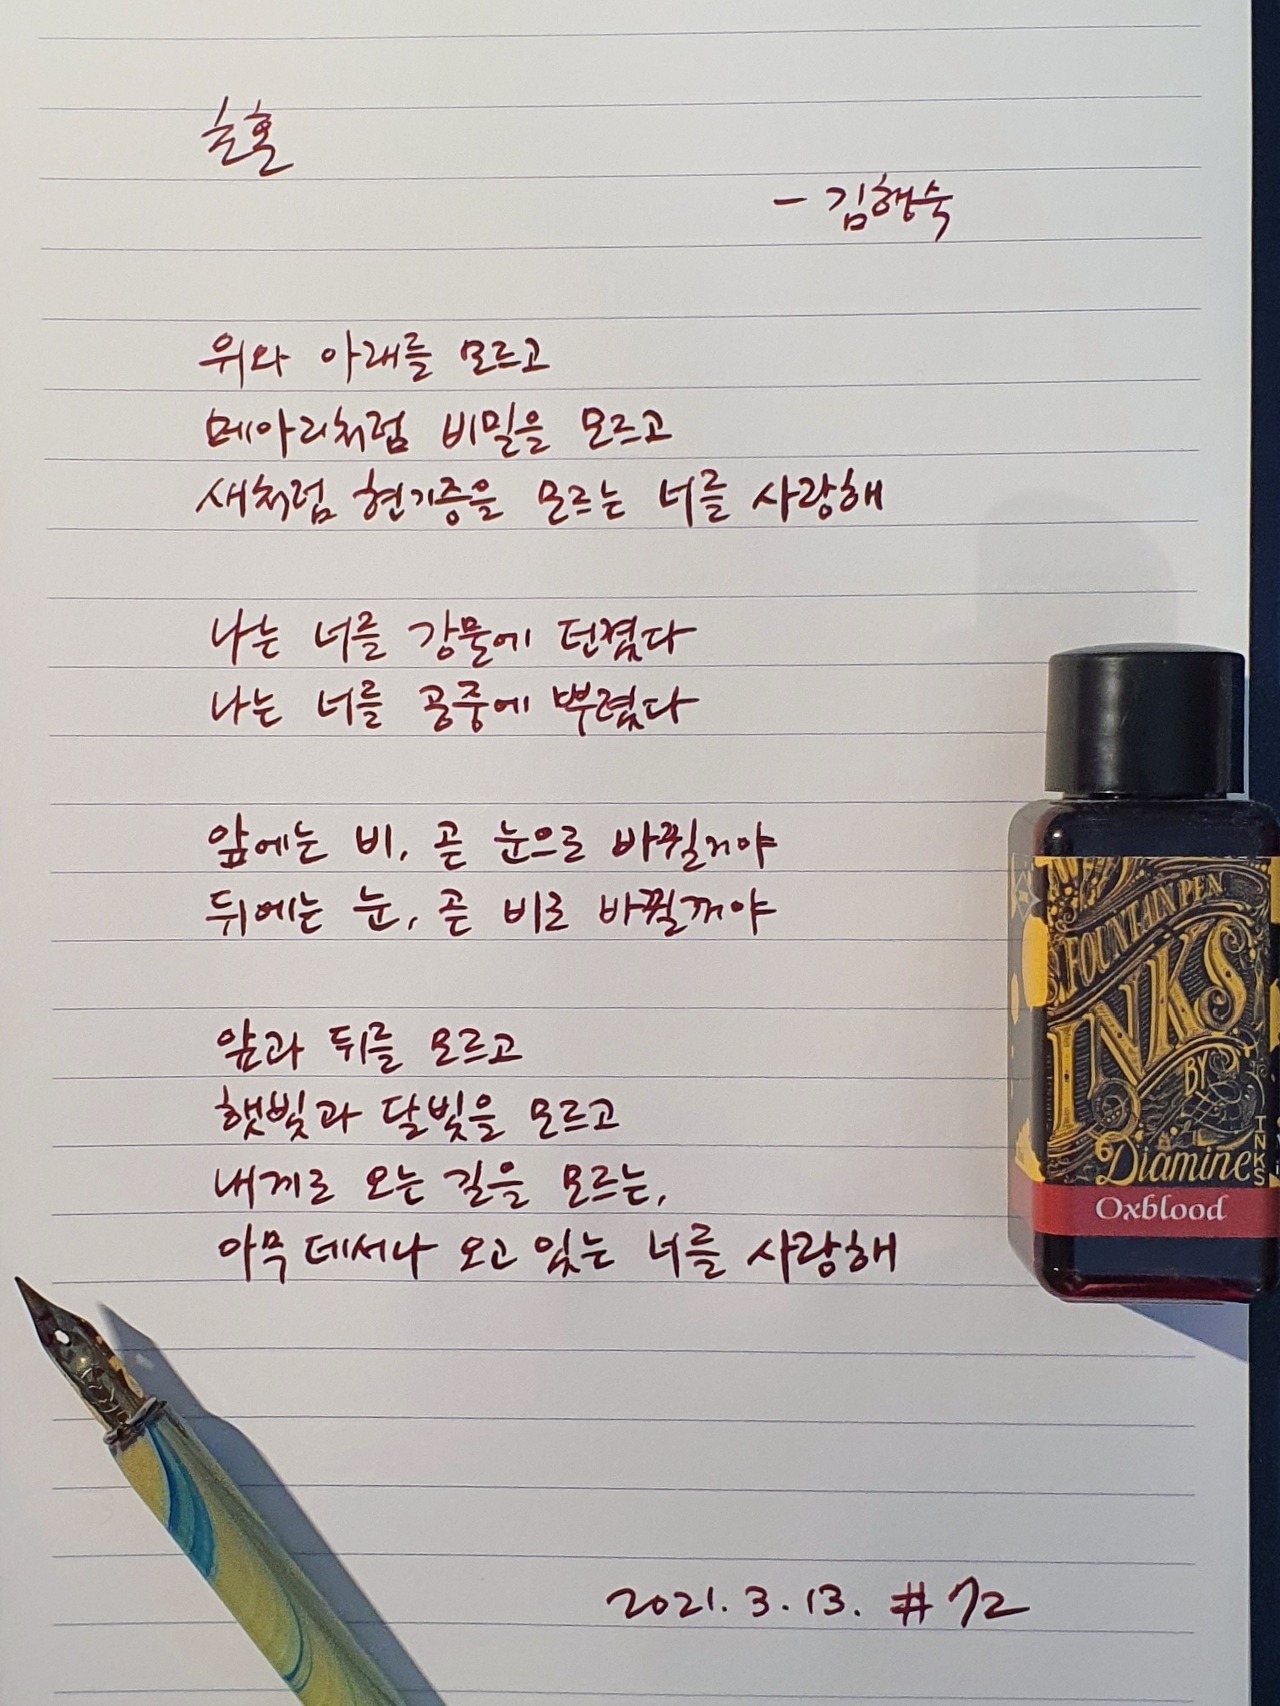 초혼
- 김행숙
위와 아래를 모르고
메아리처럼 비밀을 모르고
새처럼 현기증을 모르는 너를 사랑해
나는 너를 강물에 던졌다
나는 너를 공중에 뿌렸다
앞에는 비, 곧 눈으로 바뀔거야
뒤에는 눈, 곧 비로 바뀔꺼야
앞과 뒤를 모르고
햇빛과 달빛을 모르고
내게로 오는 길을 모르는,
아무 데서나 오고 있는 너를 사랑해
2021. 3. 13. #72
FOUNTAIN PEN
INKS
BY
Diamine
Oxblood